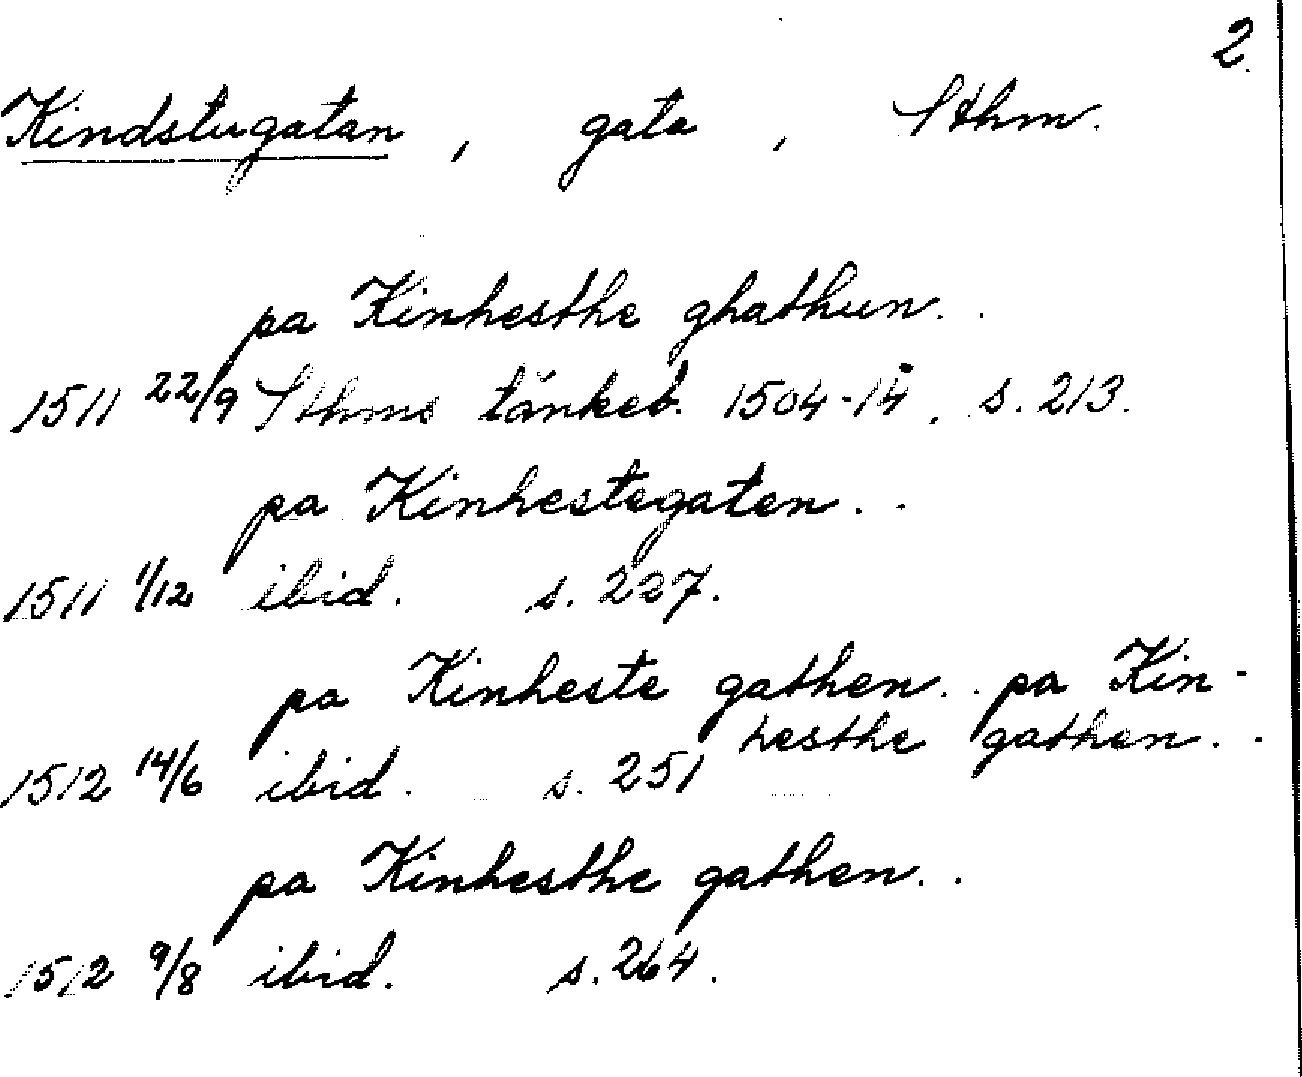 2.
Kindstugatan, gata, Sthm.
pa Kinhesthe ghathun..
1511 22/9 Sthms tänkeb. 1504-14, s. 213.
pa Kinhestegaten..
1511 1/12 ibid. s. 227.
pa Kinheste gathen.. pa Kin-
hesthe gathen..
1512 14/6 ibid. s. 251
pa Kinhesthe gathen..
1512 9/8 ibid. s. 264.